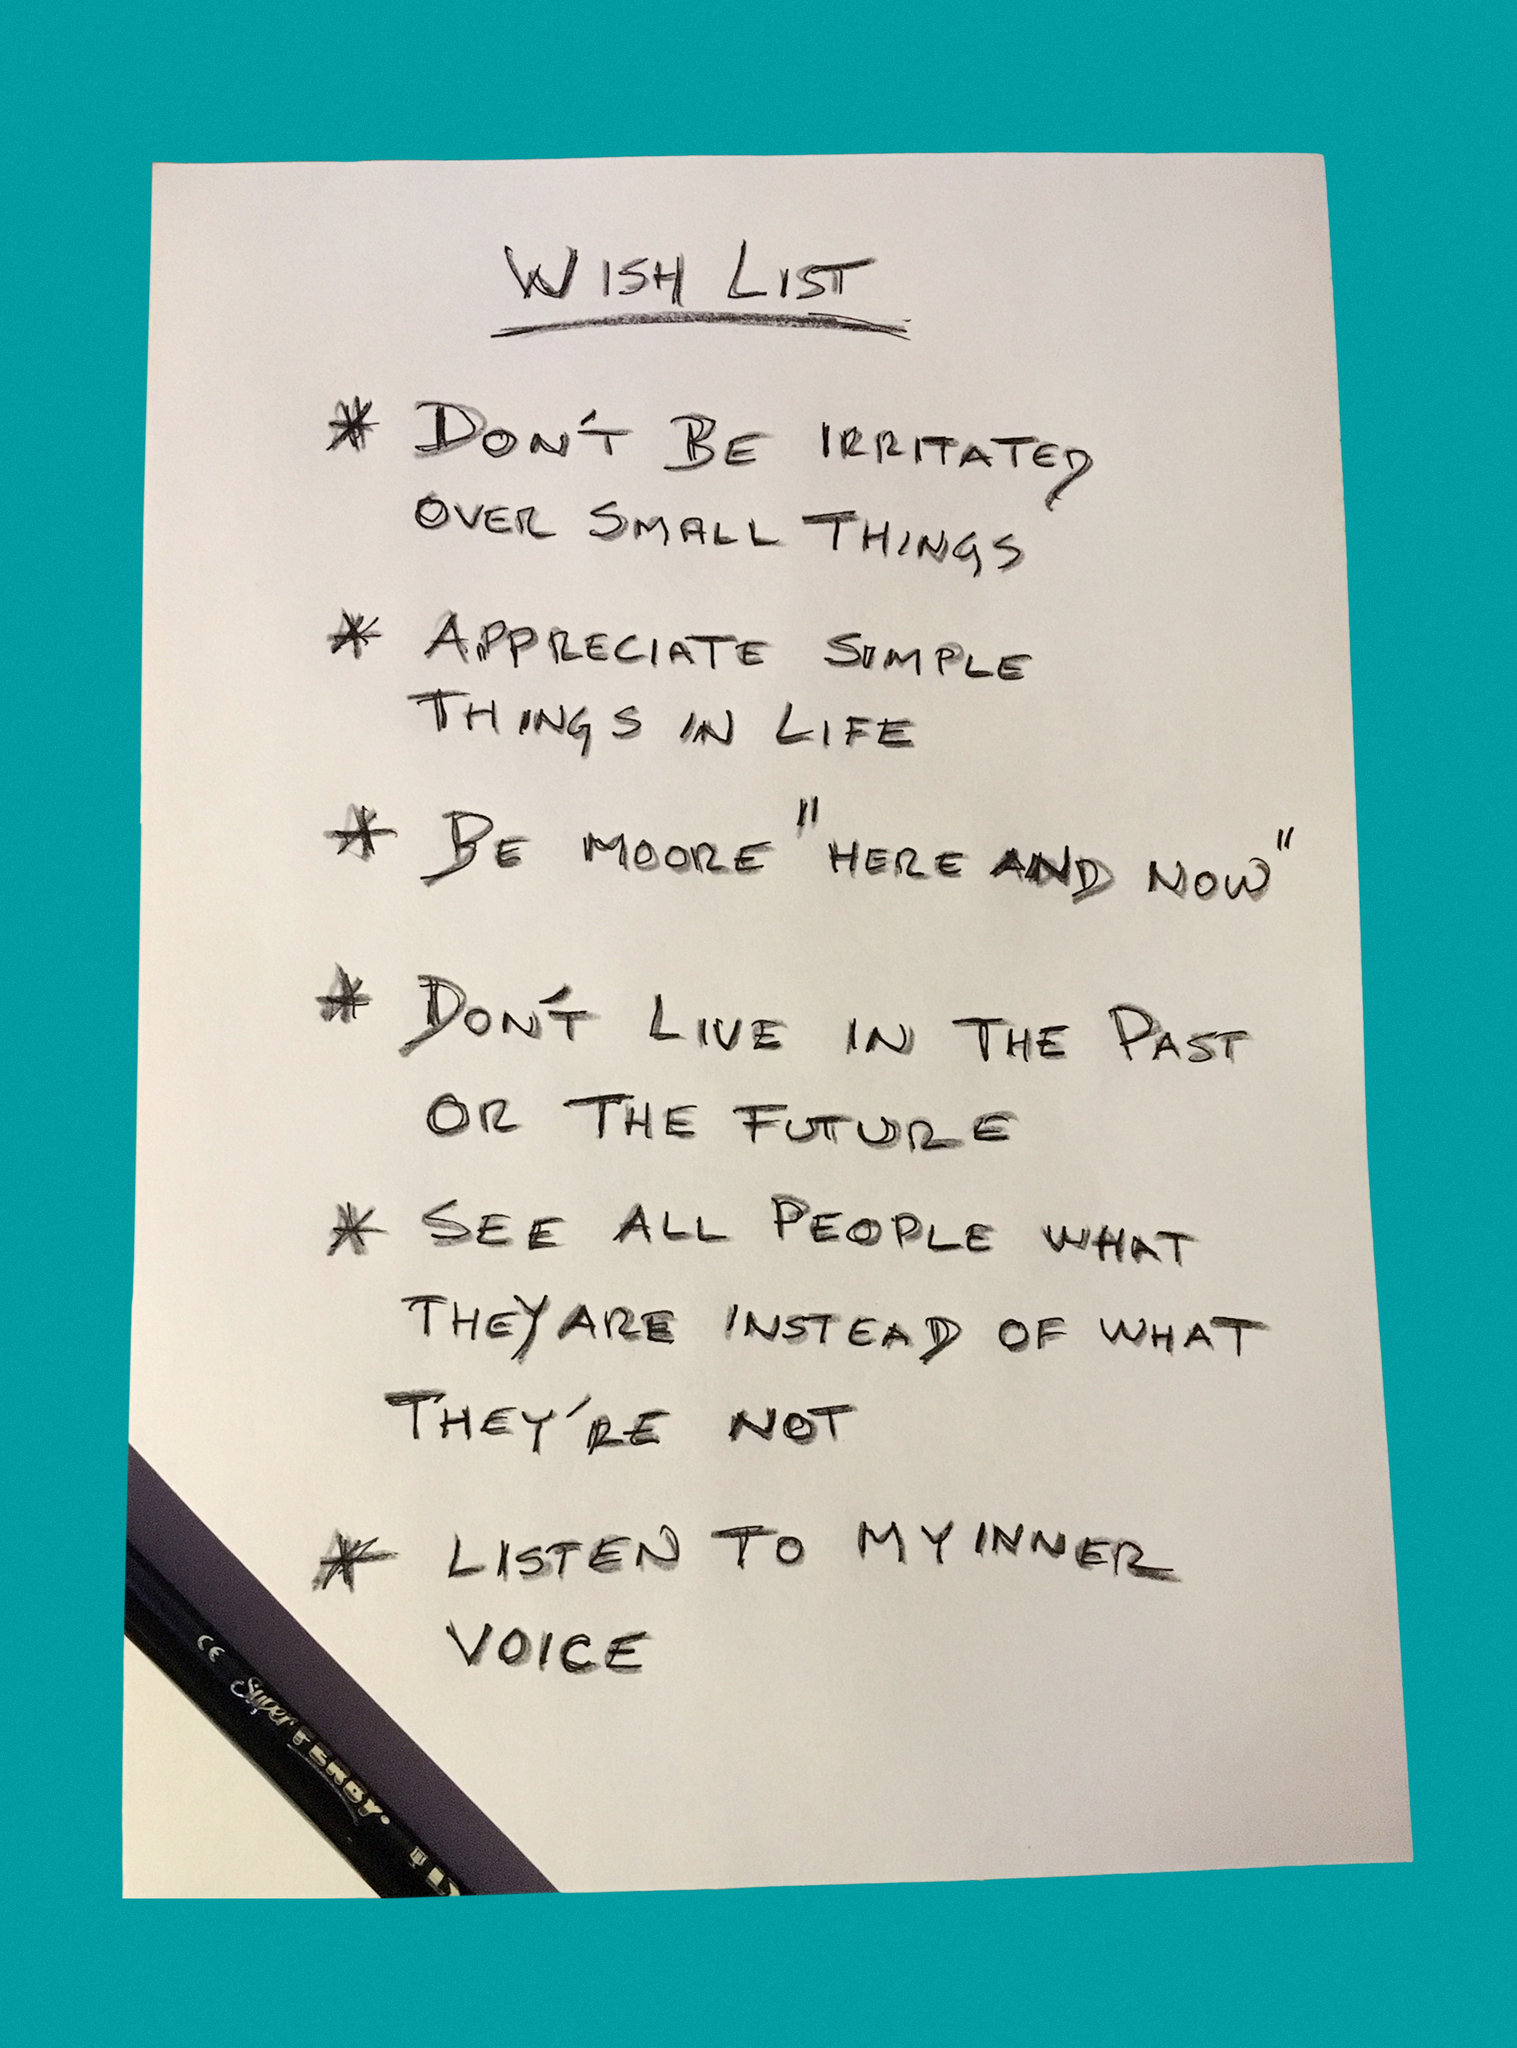 WISH LIST
* DON'T BE IRRITATED
OVER SMALL THINGS
* APPRECIATE SIMPLE
THINGS IN LIFE
* BE MOORE "HERE AND NOW"
* DON'T LIVE IN THE PAST
OR THE FUTURE
* SEE ALL PEOPLE WHAT
THEY ARE INSTEAD OF WHAT
THEY'RE NOT
* LISTEN TO MY INNER
VOICE
CE Super FERBY.